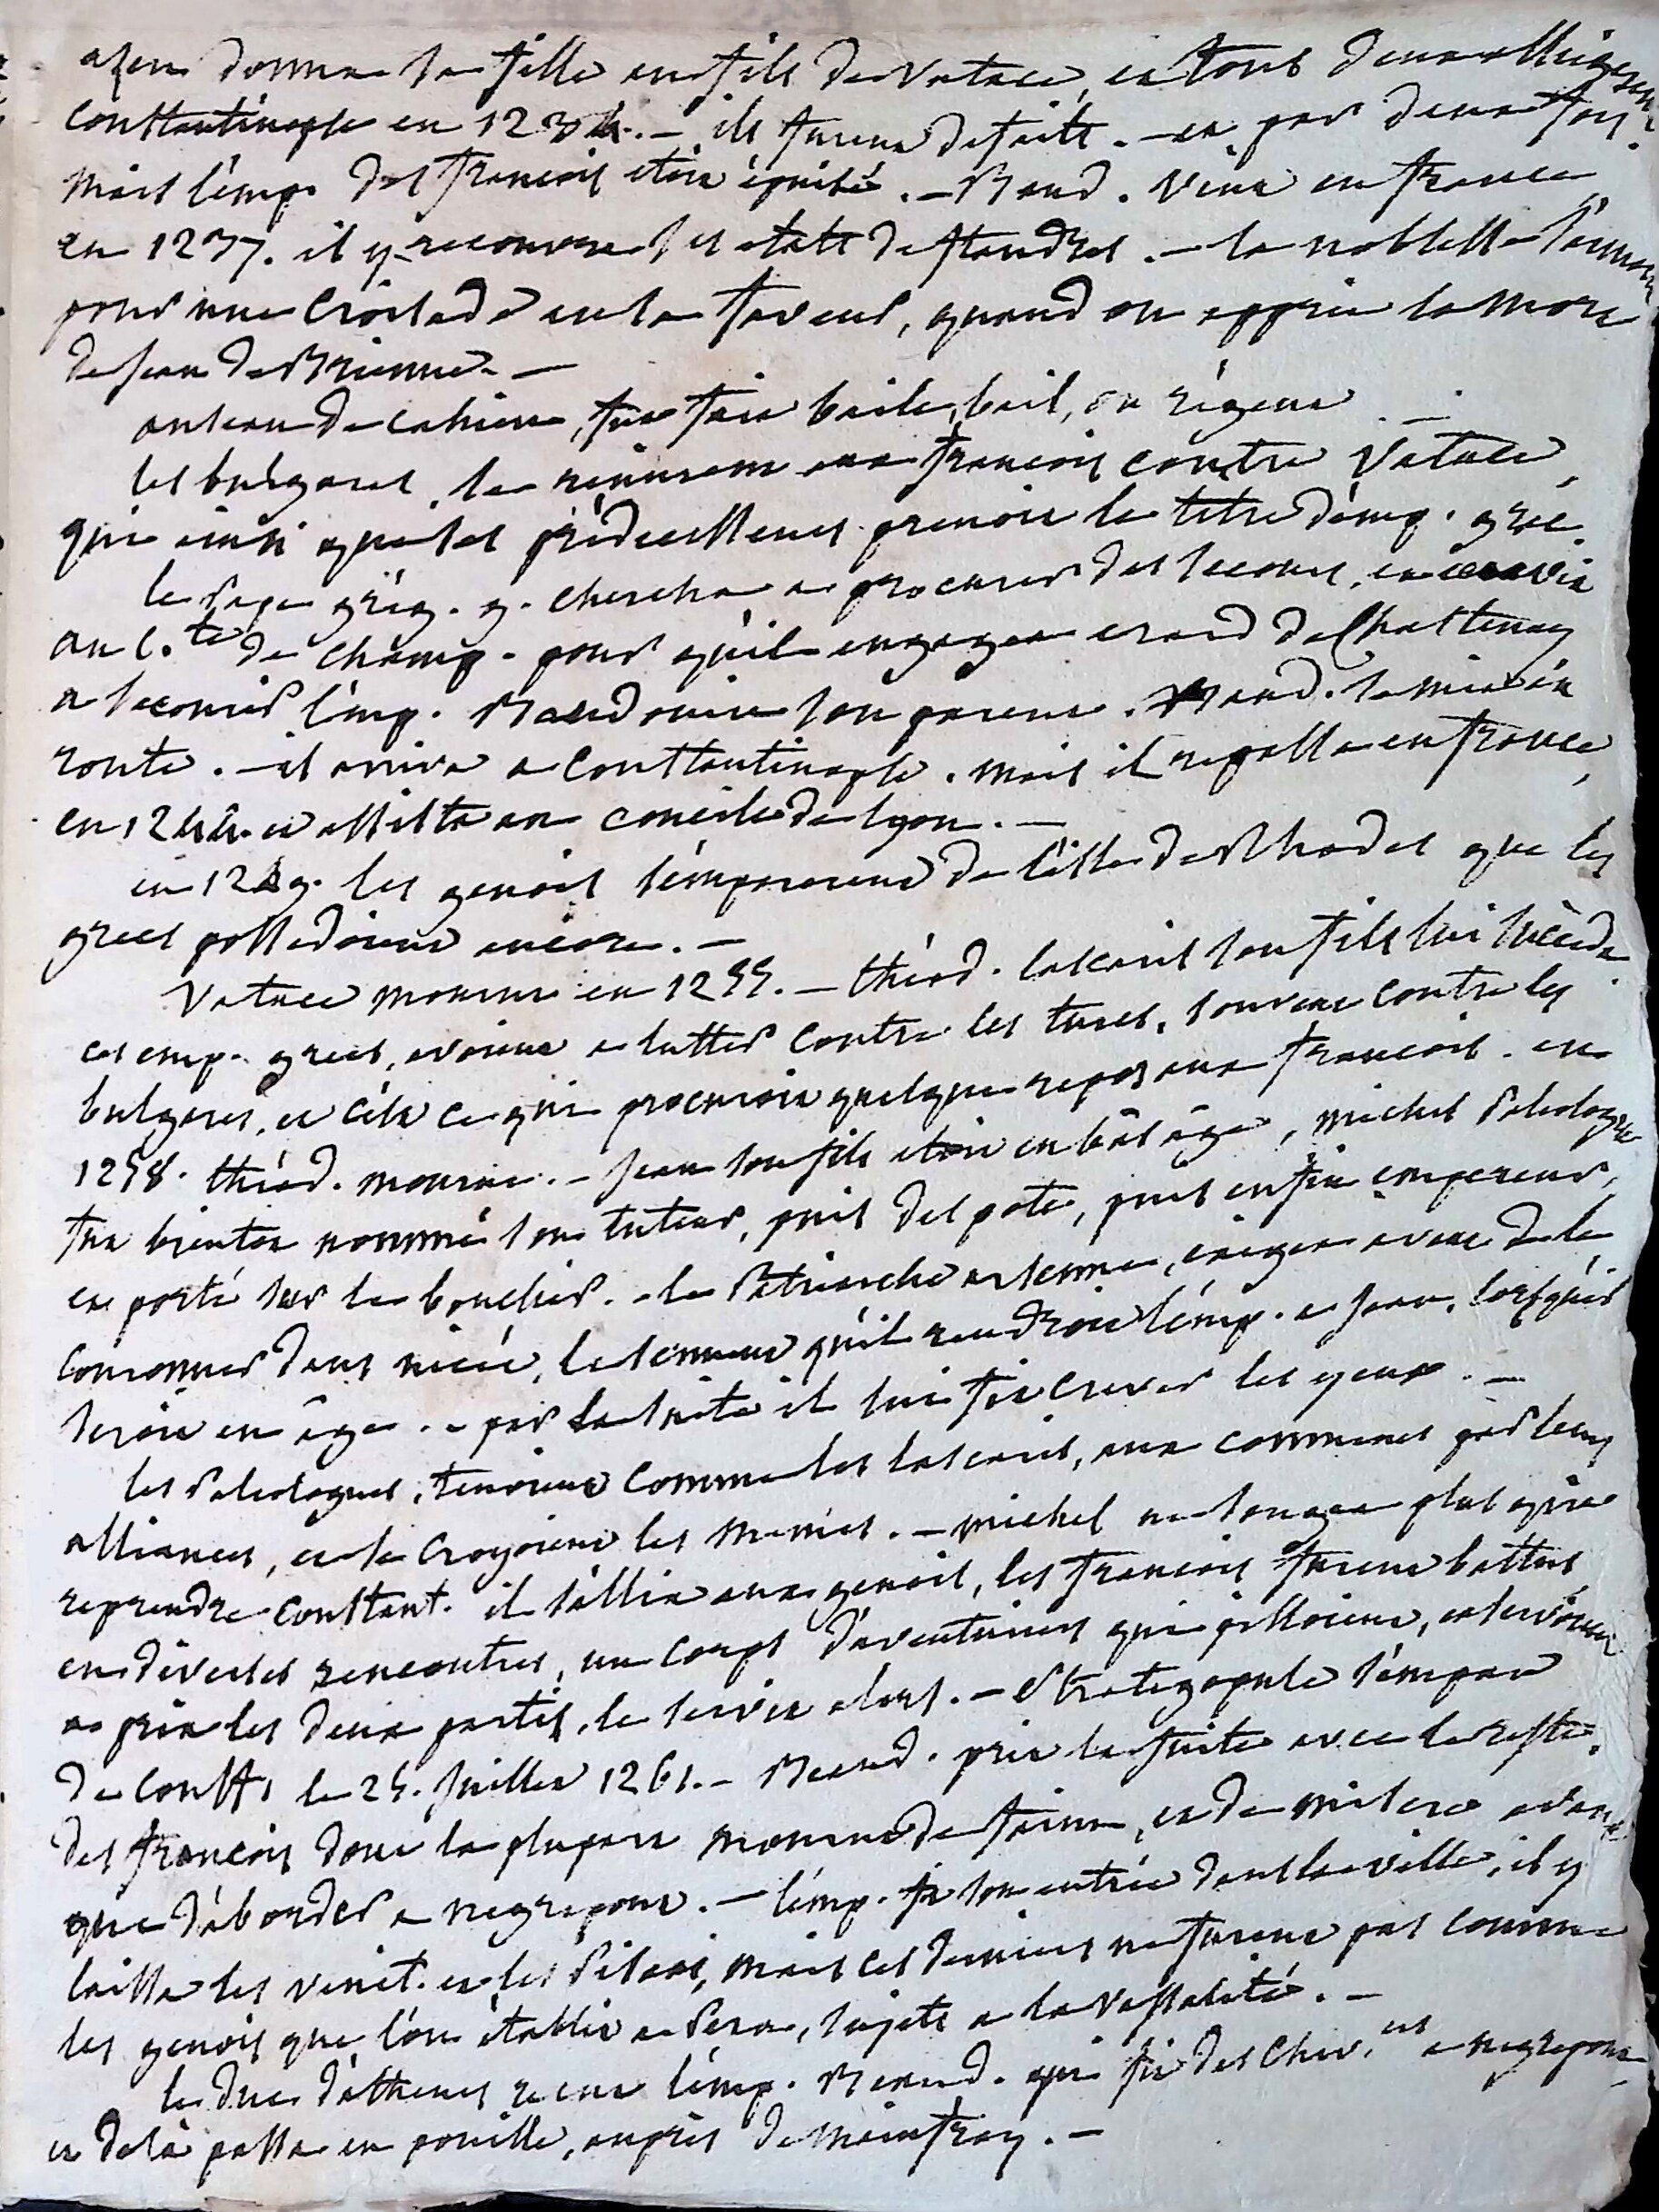 asen donna sa fille au fils de vatace, et tous deux assiegerent
constantinople en 1234. – ils furent defaits. – et par deux fois.
mais l'emp. des francois etoit épuisé. – Baud. vint en france
en 1237. il y recouvra ses etats de flandres. – la noblesse s'arma
pour une croisade en sa faveur, quand on apprit la mort
de jean de Brienne. –
anseau de cahieu, fut fait baile, bail, ou régent. –
les bulgares se reunirent aux francois contre vatace,
qui ainsi que ses prédecesseurs prenoit le titre d'emp. grec.
le Pape grég. 9. chercha a procurer des secours, et ecrivit
au C.te de champ. pour qu'il engagea erard de Chastenay
a secourir l'emp. Baudouin son parent. Baud. se mit en
route. – il arriva a Constantinople. mais il repassa en france,
en 1244. et assista au concile de lyon. –
en 1249. les genois s'emparerent de l'isle de Rhodes que les
grecs possedoient encore. –
Vatace mourut en 1255. – théod. lascaris son fils lui succeda.
ces emp. grecs, avoient a lutter contre les turcs, souvent contre les
bulgares, et c'est ce qui procuroit quelque repos aux francois. en
1258. théod. mourut. – jean son fils etoit en bas âge, michel Paleologue
fut bientot nommé son tuteur, puis despote, puis enfin empereur,
et porté sur le bouclier. – le Patriarche arsenne, exigea avant de le
couronner dans nicée, le serment qu'il rendroit l'emp. a jean, lorsqu'il
seroit en âge. – par la suite il lui fit crever les yeux. –
les Paleologues, tenoient comme les lascaris, aux comnenes par leurs
alliances, et se croyoient les memes. – michel ne songea plus qu'a
reprendre constant. il s'allia aux genois, les francois furent battus
en diverses rencontres, un corps d'aventuriers qui pilloient, et servoient
a prix les deux partis, le servit alors. – Strategopule s'empara
de const. le 25. juillet 1261. – Baud. prit la fuite avec le reste
des francois dont la plupart mourut de faim, et de misere avant
que d'aborder a negrepont. – l'emp. fit son entrée dans la ville, il y
laissa les venit. et les Pisans, mais ces derniers ne furent pas comme
les genois que l'on établit a Pera, sujets a la vassalité. –
le duc d'athenes recut l'emp. Baud. qui fit des chev.ers a negrepont
et de là passa en pouille, aupres de mainfroy. –